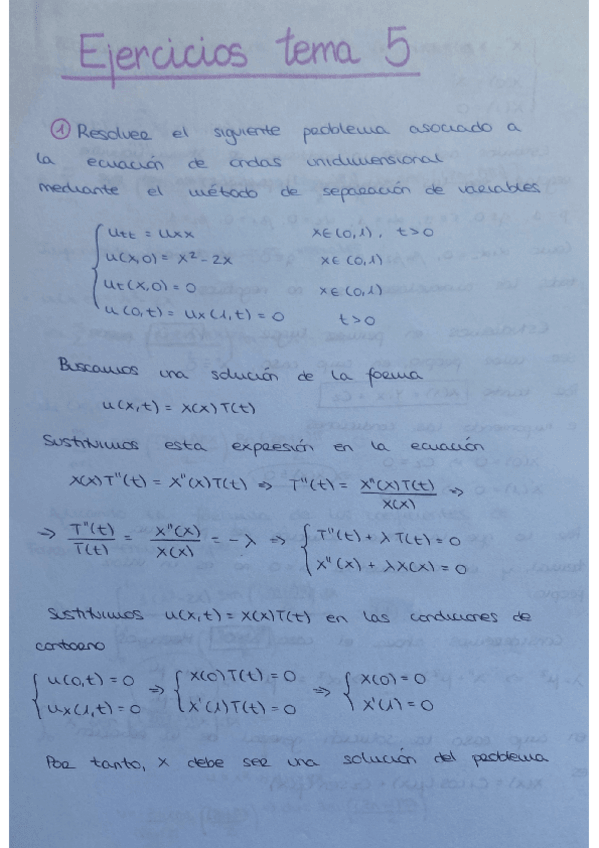 Ejercicios tema 5
① Resolver el siguiente problema asociado a
la ecuación de ondas unidimensional
mediante el método de separación de variables
utt = uxx x∈(0,1), t>0
u(x,0) = x²-2x x∈(0,1)
ut(x,0) = 0 x∈(0,1)
u(0,t) = ux(1,t) = 0 t>0
Buscamos una solución de la forma
u(x,t) = X(x)T(t)
Sustituimos esta expresión en la ecuación
X(x)T''(t) = X''(x)T(t) ⇒ T''(t) = X''(x)T(t)/X(x) ⇒
⇒ T''(t)/T(t) = X''(x)/X(x) = -λ ⇒ { T''(t) + λT(t) = 0
X''(x) + λX(x) = 0
Sustituimos u(x,t) = X(x)T(t) en las condiciones de
contorno
{ u(0,t) = 0 ⇒ { X(0)T(t) = 0 ⇒ { X(0) = 0
ux(1,t) = 0 X'(1)T(t) = 0 X'(1) = 0
Por tanto, X debe ser una solución del problema